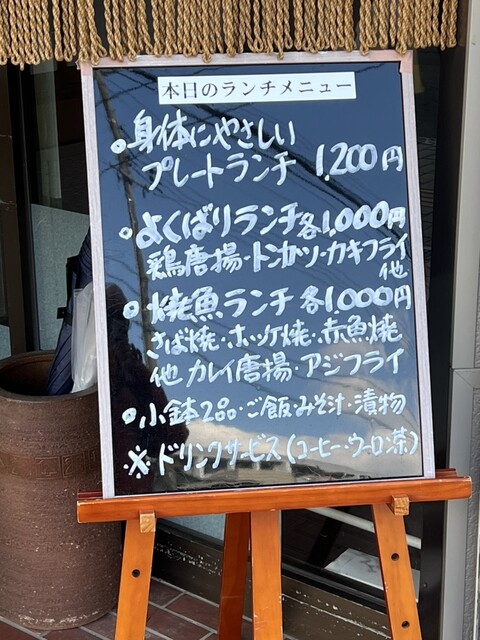 本日のランチメニュー
• 身体にやさしい
プレートランチ 1,200円
• よくばりランチ各1,000円
鶏唐揚・トンカツ・カキフライ
他
• 焼魚ランチ 各1,000円
さば焼・ホッケ焼・赤魚焼
他 カレイ唐揚・アジフライ
• 小鉢2品・ご飯・みそ汁・漬物
※ ドリンクサービス(コーヒー・ウーロン茶)